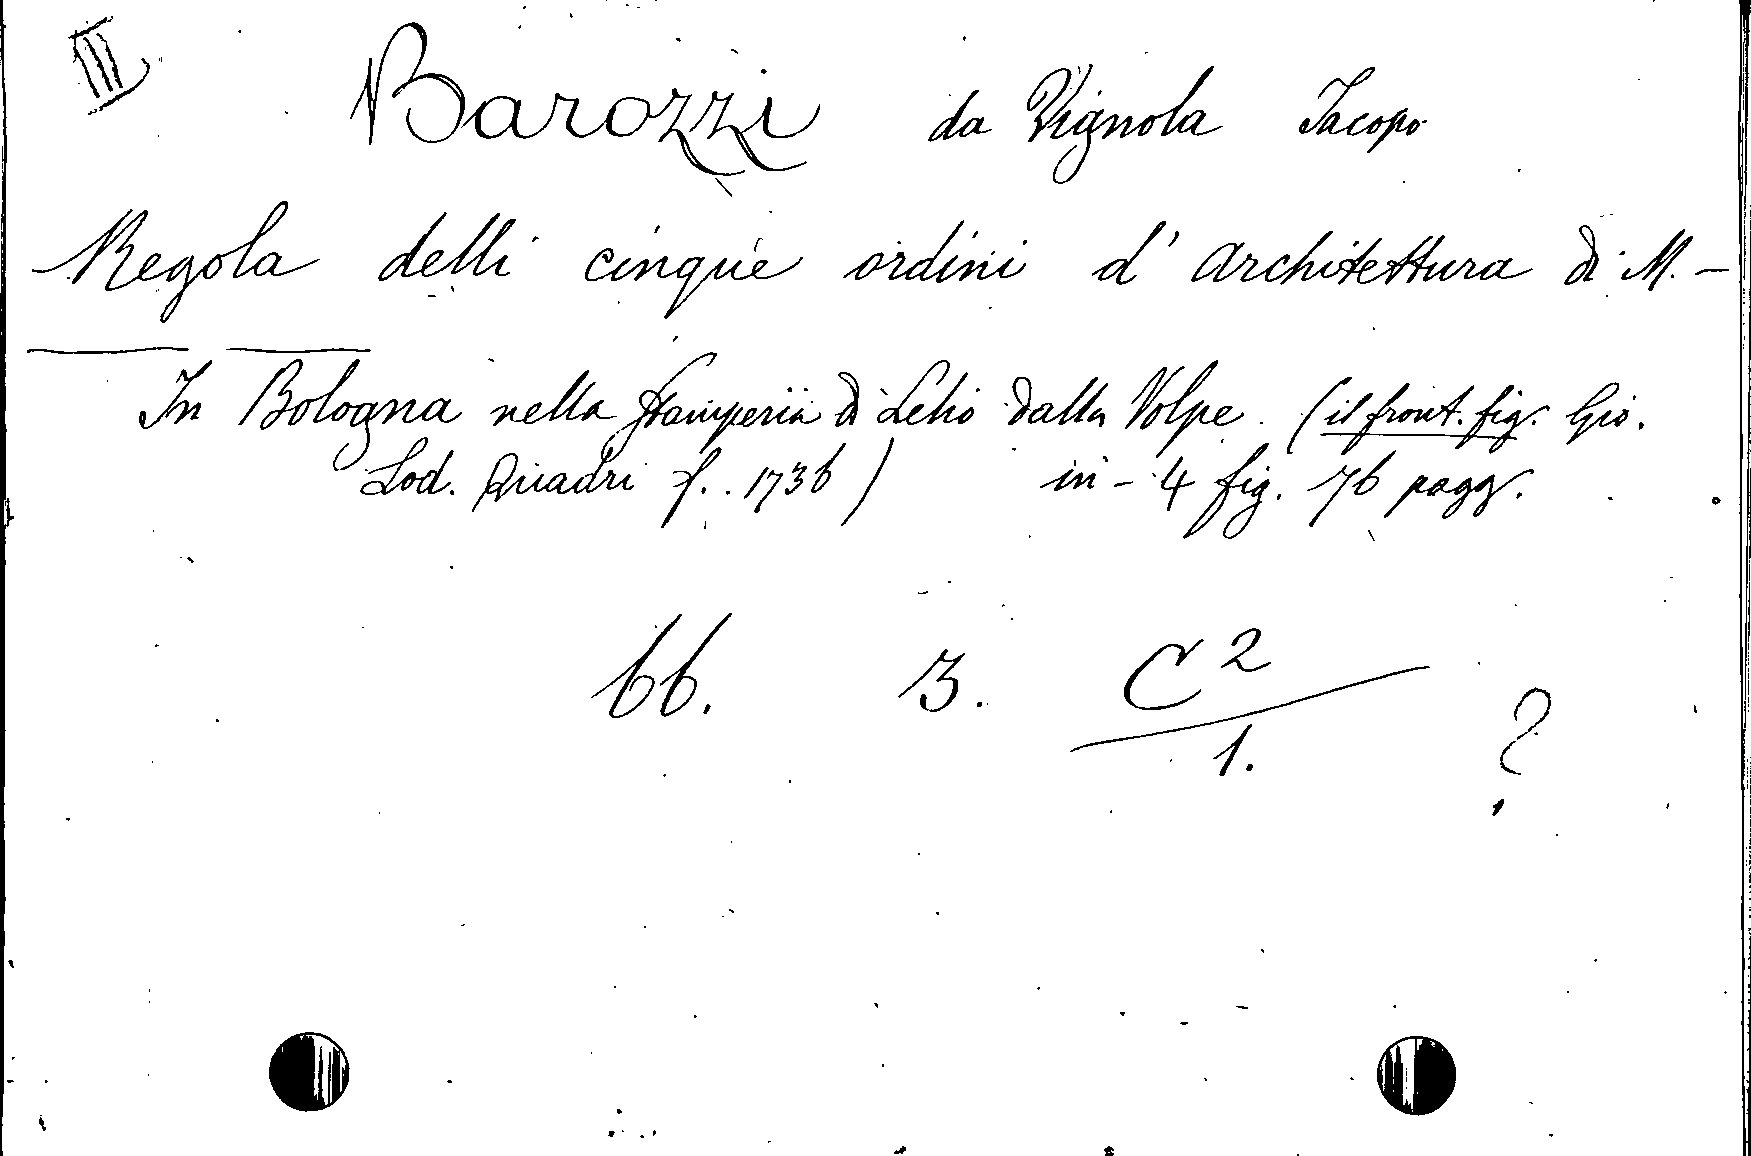 III
Barozzi da Vignola Iacopo
Regola delli cinque ordini d'architettura di M. —
— —
In Bologna nella stamperia di Lelio dalla Volpe. (il front. fig. Gio.
Lod. Quadri f. . 1736) in-4 fig. 76 pagg.
66. 3. C 2
1. ?